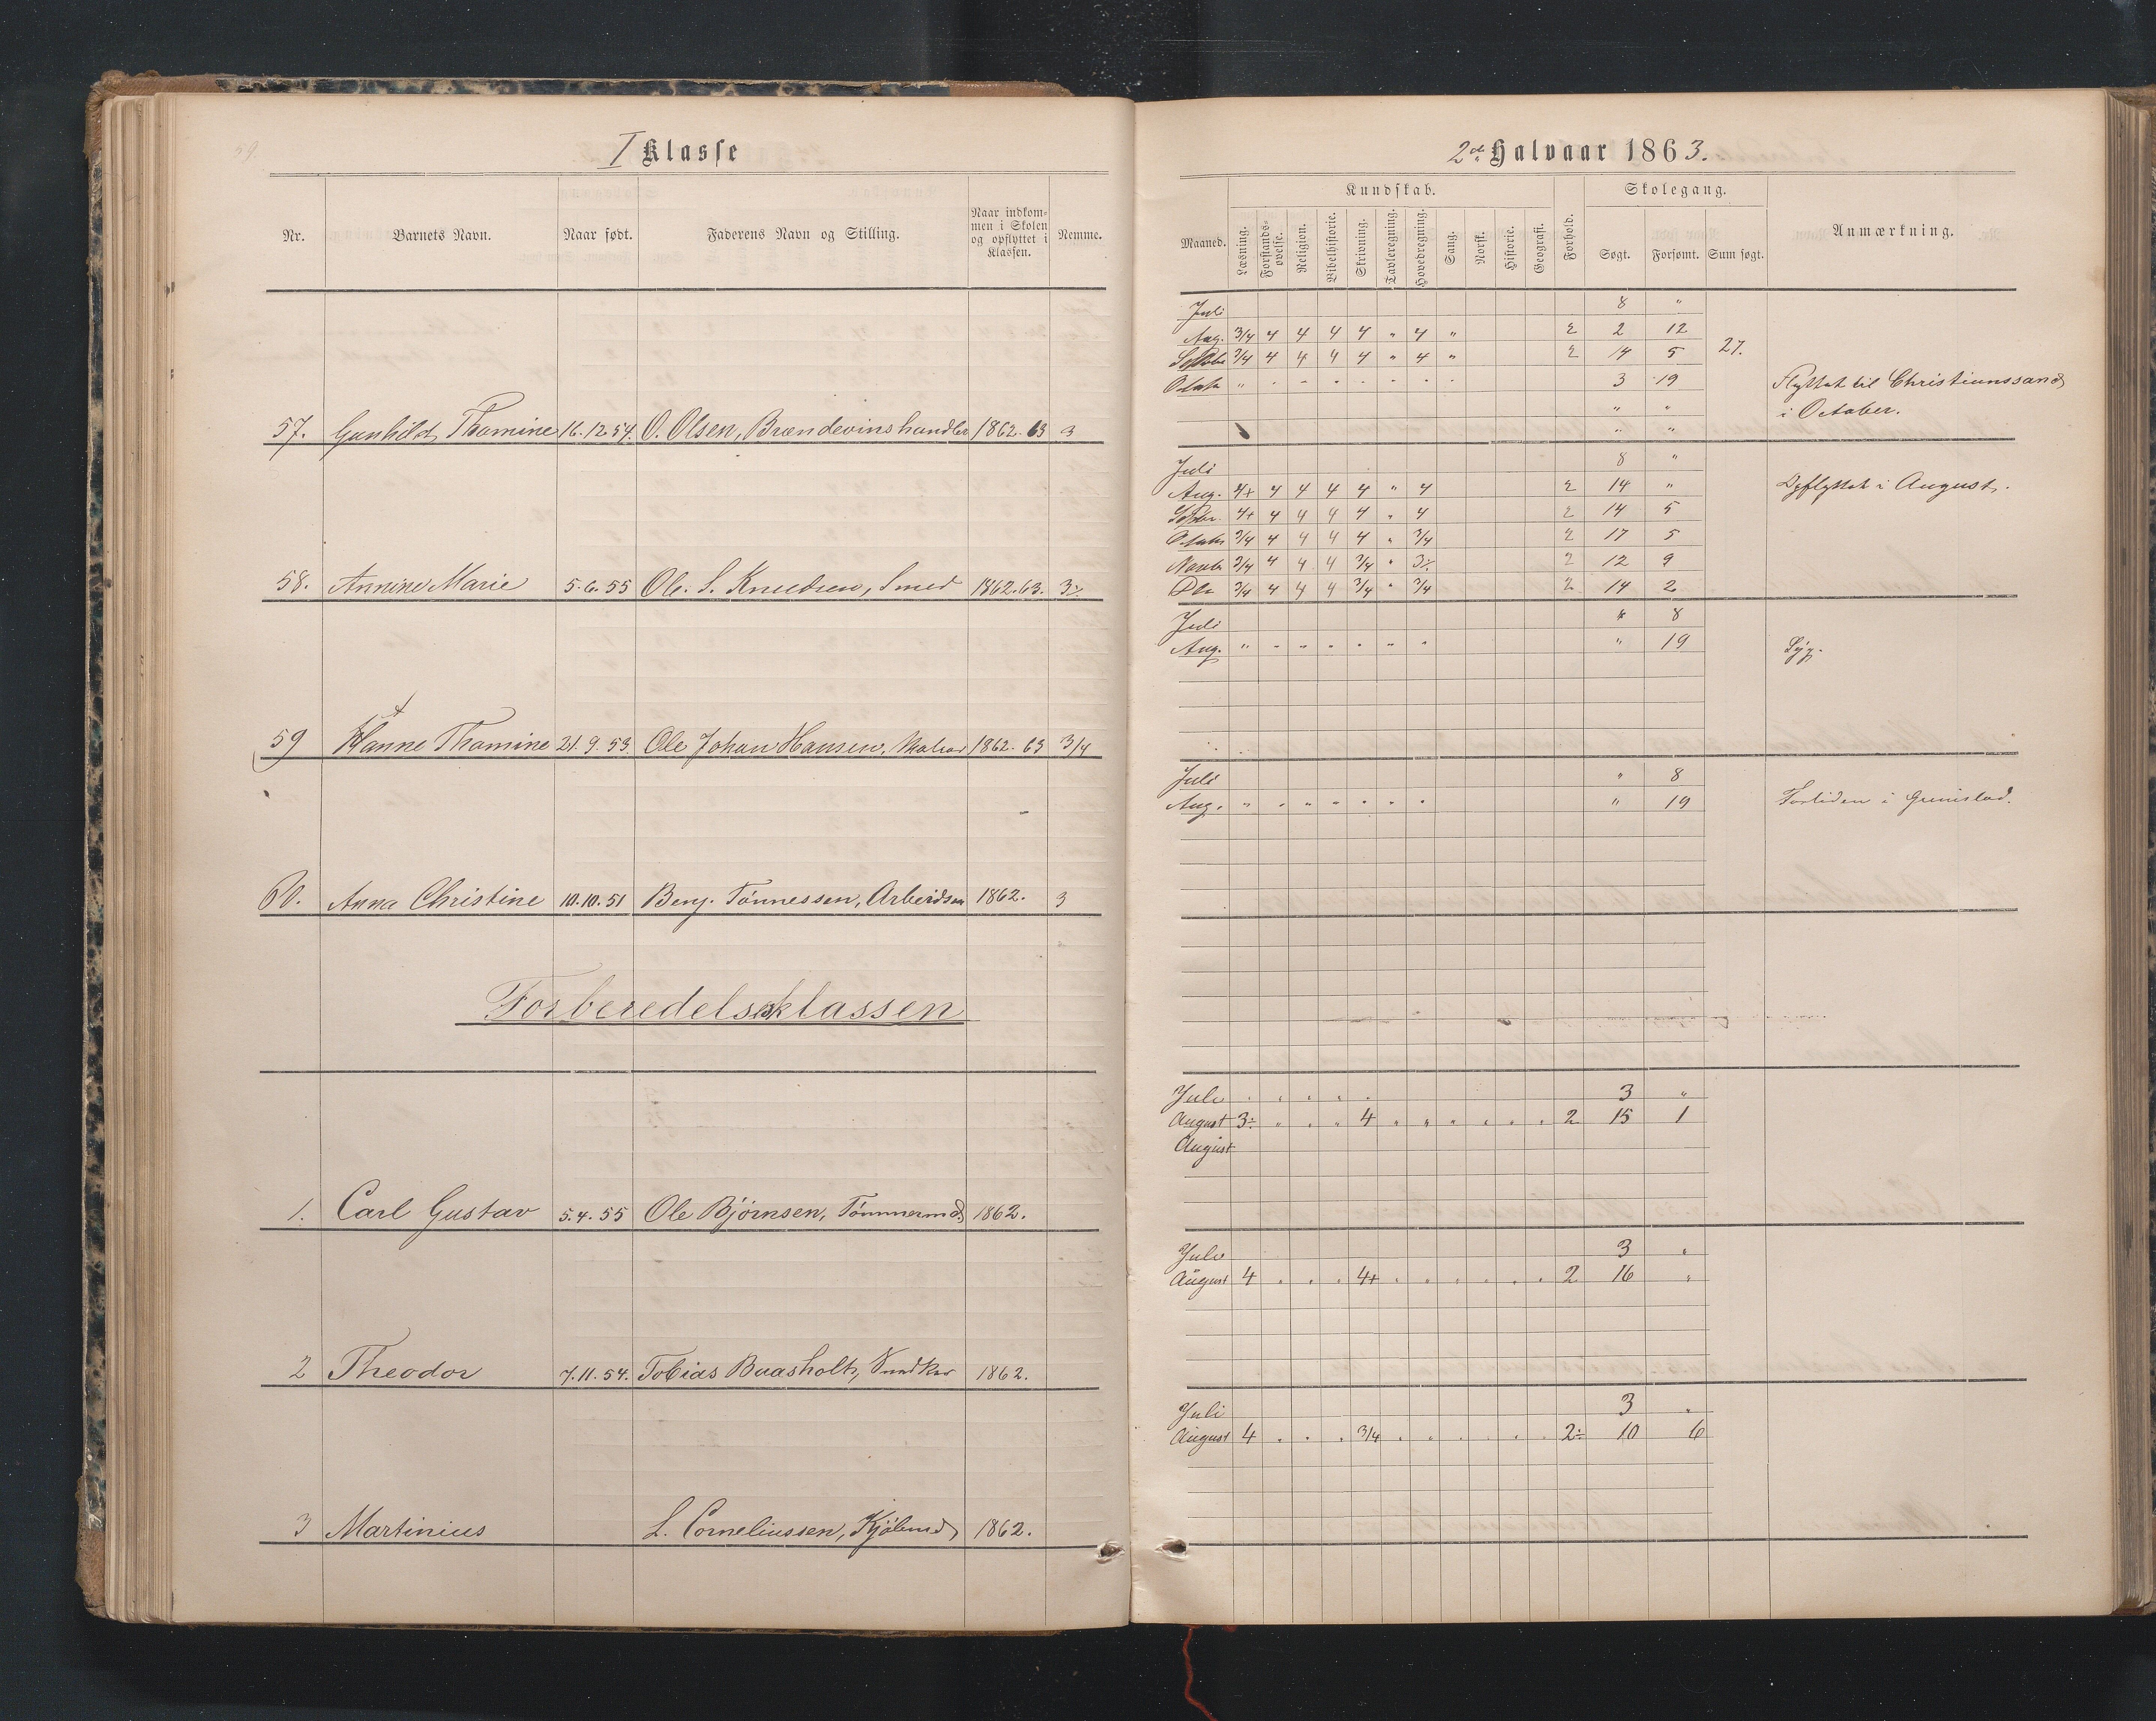 59.
I Klasse
2det Halvaar 1863.
Nr. Barnets Navn. Naar født. Faderens Navn og Stilling. Naar indkommen i Skolen og opflyttet i Klassen. Nemme.
Maaned. Kundskab. Læsning. Forstandsøvelse. Religion. Bibelhistorie. Skrivning. Tavleregning. Hovedregning. Sang. Norsk. Historie. Geografi. Forhold. Skolegang. Søgt. Forsømt. Sum søgt. Anmærkning.
57. Gunhild Thomine 16.12.54. O. Olsen, Brændevinshandler 1862. 63 3
Juli 8 "
Aug. 3/4 4 4 4 4 " 4 " 2 2 12
Septbr 3/4 4 4 4 4 " 4 " 2 14 5 27.
Octobr " " " " " " " " 3 19 Flyttet til Christianssand
" " i October.
" "
58. Annine Marie 5.6.55 Ole. S. Knudsen, Smed 1862.63. 3÷
Juli 8 "
Aug. 4+ 4 4 4 4 " 4 2 14 " Opflyttet i August.
Septbr. 4+ 4 4 4 4 " 4 2 14 5
Octobr 3/4 4 4 4 4 " 3/4 2 17 5
Novbr 3/4 4 4 4 3/4 " 3÷ 2 12 9
Dbr 3/4 4 4 4 3/4 " 3/4 2 14 2
59 Hanne Thomine 21.9.53. Ole Johan Hansen, Matros 1862. 63 3/4
Juli " 8
Aug. " " " " " " " " 19 Syg.
60. Anna Christine 10.10.51 Benj. Tønnessen, Arbeidsm 1862. 3
Juli " 8
Aug. " " " " " " " " 19 Fortiden i Grimstad.
Forberedelsesklassen
1. Carl Gustav 5.4.55 Ole Bjørnsen, Tømmermd 1862.
Juli " " " " " 3 "
August 3÷ " " " 4 " " " " " " 2 15 1
August
2 Theodor 7.11.54. Tobias Baasholt, 1862.
Juli 3 "
August 4 " " " 4+ " " " " " " 2 16 "
3 Martinius L. Corneliussen, Kjøbmd 1862.
Juli 3 "
August 4 " " " 3/4 " " " " " " 2÷ 10 6